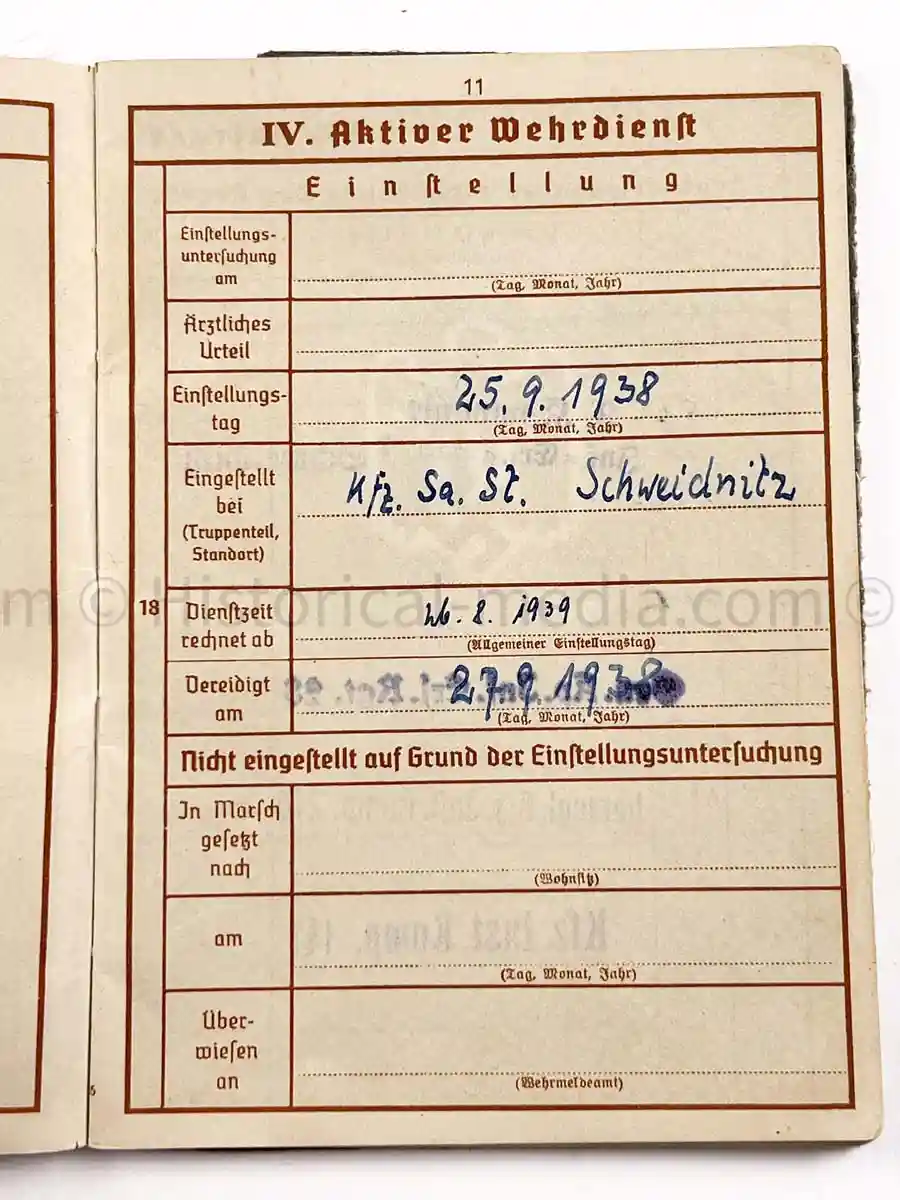 11
IV. Aktiver Wehrdienst
Einstellung
Einstellungs-
untersuchung
am
(Tag, Monat, Jahr)
Ärztliches
Urteil
Einstellungs-
tag
25.9.1938
(Tag, Monat, Jahr)
Eingestellt
bei
(Truppenteil,
Standort)
Kfz. Sa. St. Schweidnitz
18
Dienstzeit
rechnet ab
26.8.1939
(Allgemeiner Einstellungstag)
Vereidigt
am
27.9.1938
(Tag, Monat, Jahr)
Nicht eingestellt auf Grund der Einstellungsuntersuchung
In Marsch
gesetzt
nach
(Wohnsitz)
am
(Tag, Monat, Jahr)
Über-
wiesen
an
(Wehrmeldeamt)
m © Historical-media.com ©